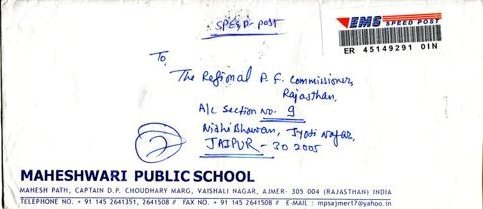 SPEED-POST
EMS SPEED POST
ER 45149291 0IN
To,
The Regional P. F. Commissioner,
Rajasthan,
A/c Section No. 9
Nidhi Bhawan, Jyoti Nagar,
JAIPUR - 302005
2
MAHESHWARI PUBLIC SCHOOL
MAHESH PATH, CAPTAIN D.P. CHOUDHARY MARG, VAISHALI NAGAR, AJMER- 305 004 (RAJASTHAN) INDIA
TELEPHONE NO. + 91 145 2641351, 2641508 // FAX NO. + 91 145 2641508 // E-MAIL : mpsajmer17@yahoo.in